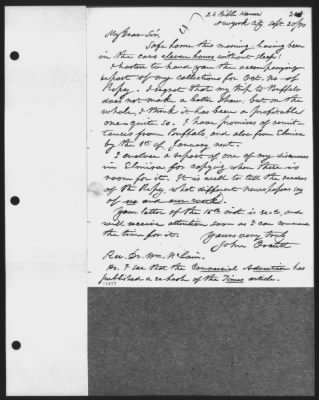 26 Bible House
New York City Sept. 20/90
My Dear Sir,
Safe home this morning having been
in the cars eleven hours without sleep!
I hasten to hand you the accompanying
report of my collections for Oct. No. of
Repy. I regret that my trip to Buffalo
does not make a better show, but on the
whole, I think it has been a profitable
one quite so. I have promises of remit-
tances from Buffalo, and also from Elmira
by the 1st of January next.
I enclose a report of one of my discourses
in Elmira for copying when there is
room for it. It is well to tell the readers
of the Repy. what different newspapers say
of us and our work.
Your letter of the 18th inst. is rec'd, and
will receive attention soon as I can command
the time for it.
Yours very truly
John
Rev. Dr. Wm. McLain.
Ps. I see that the Commercial Advertiser has
published a rehash of the Times article.